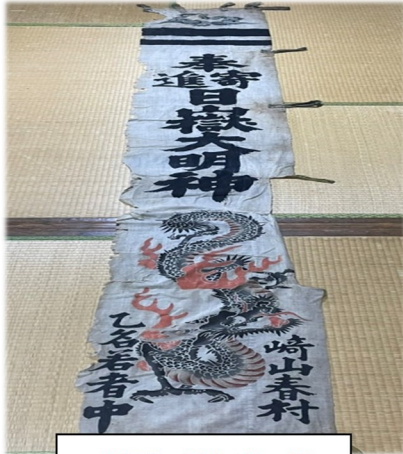 奉
寄進
日嶽大明神
崎山春村
乙名若者中